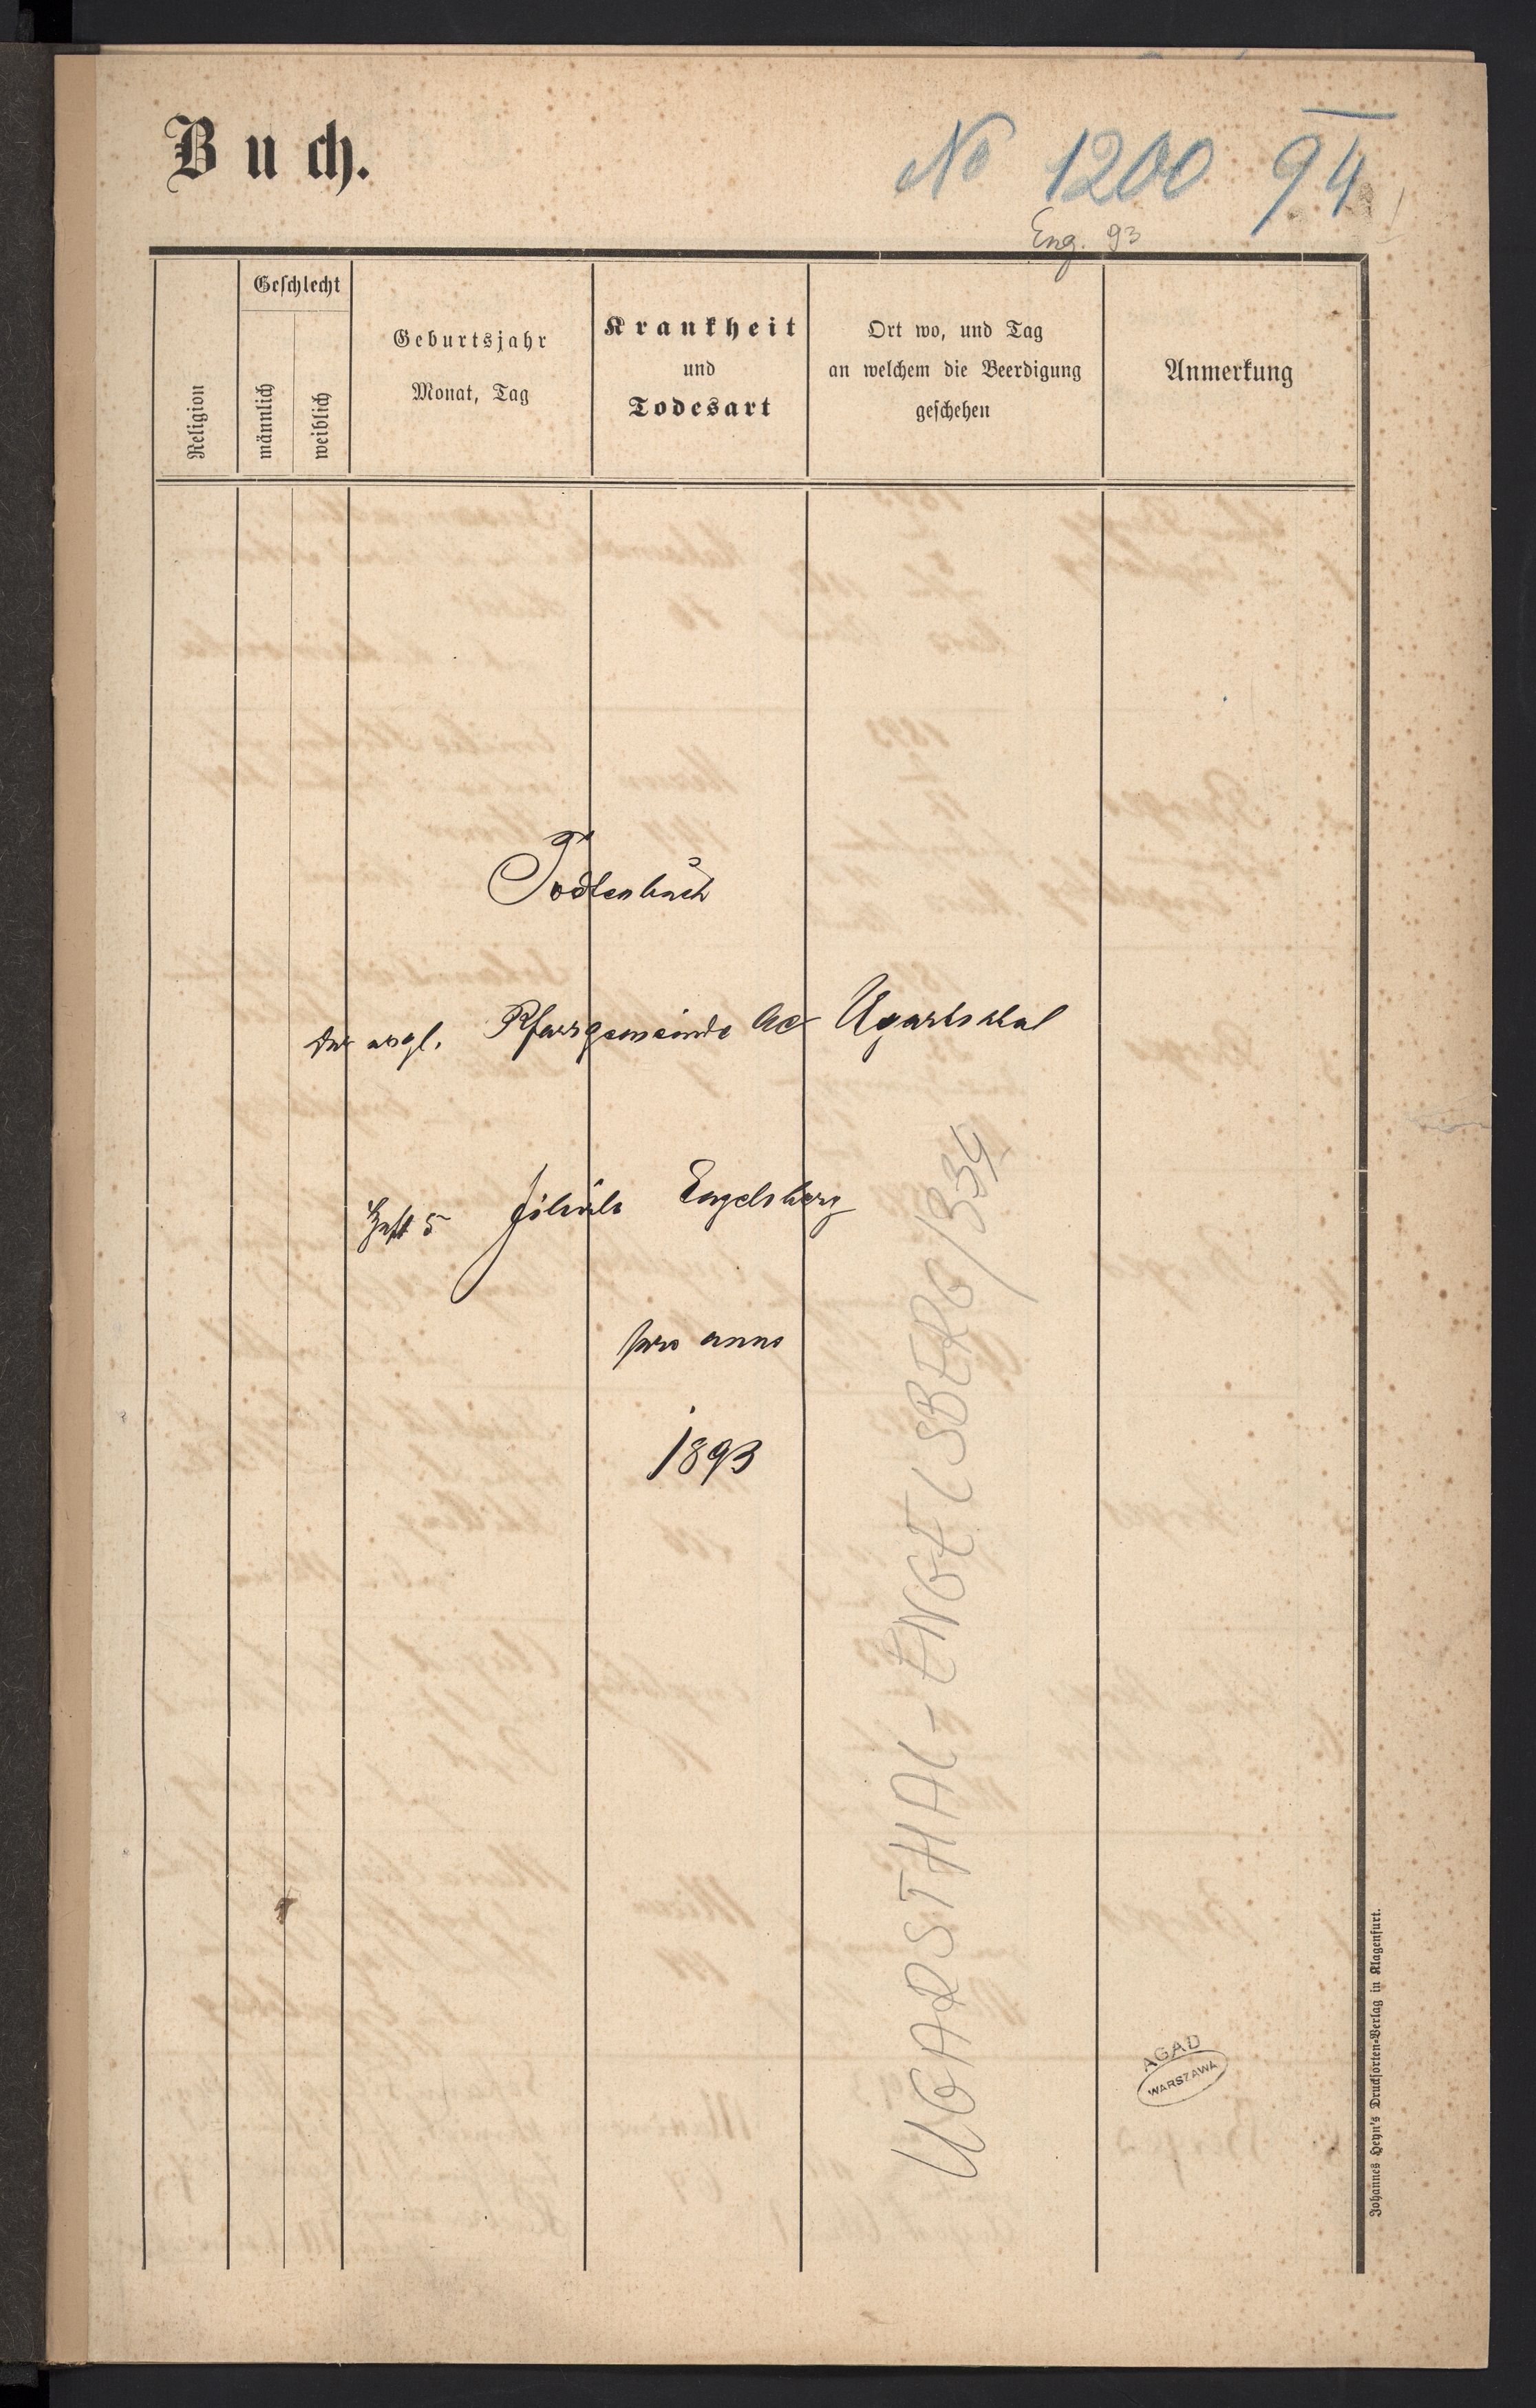 Buch.
No 1200 94
Eng. 93
Religion
Geschlecht
männlich
weiblich
Geburtsjahr
Monat, Tag
Krankheit
und
Todesart
Ort wo, und Tag
an welchem die Beerdigung
geschehen
Anmerkung
Todtenbuch
der evgl. Pfarrgemeinde AC Ugartsthal
Heft 5 Filiale Engelsberg
pro anno
1893
UGARSTHAL - ENGELSBERG/334
AGAD
WARSZAWA
Johannes Heyn's Drucksorten-Verlag in Klagenfurt.